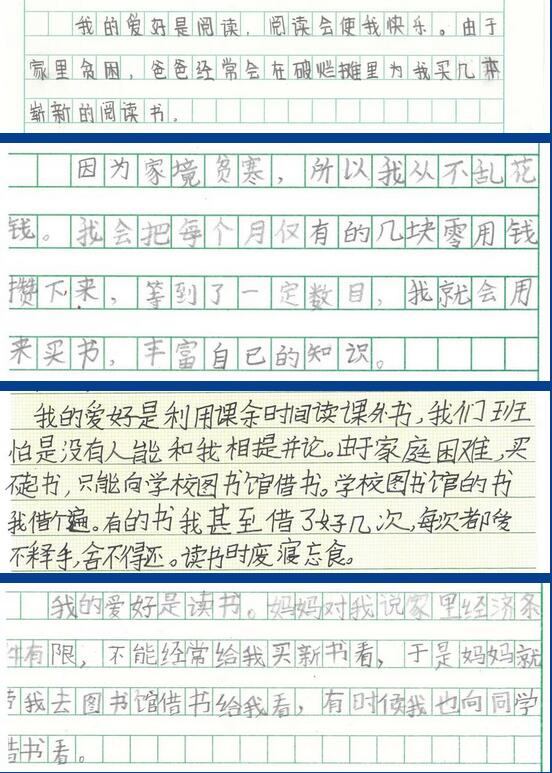 我的爱好是阅读，阅读会使我快乐。由于
家里贫困，爸爸经常会在破烂摊里为我买几本
崭新的阅读书。
因为家境贫寒，所以我从不乱花
钱。我会把每个月仅有的几块零用钱
攒下来，等到了一定数目，我就会用
来买书，丰富自己的知识。
我的爱好是利用课余时间读课外书，我们班
怕是没有人能和我相提并论。由于家庭困难，买
不起书，只能向学校图书馆借书。学校图书馆的书
我借个遍。有的书我甚至借了好几次，每次都爱
不释手，舍不得还。读书时废寝忘食。
我的爱好是读书。妈妈对我说家里经济条
件有限，不能经常给我买新书看，于是妈妈就
带我去图书馆借书给我看，有时候我也向同学
借书看。